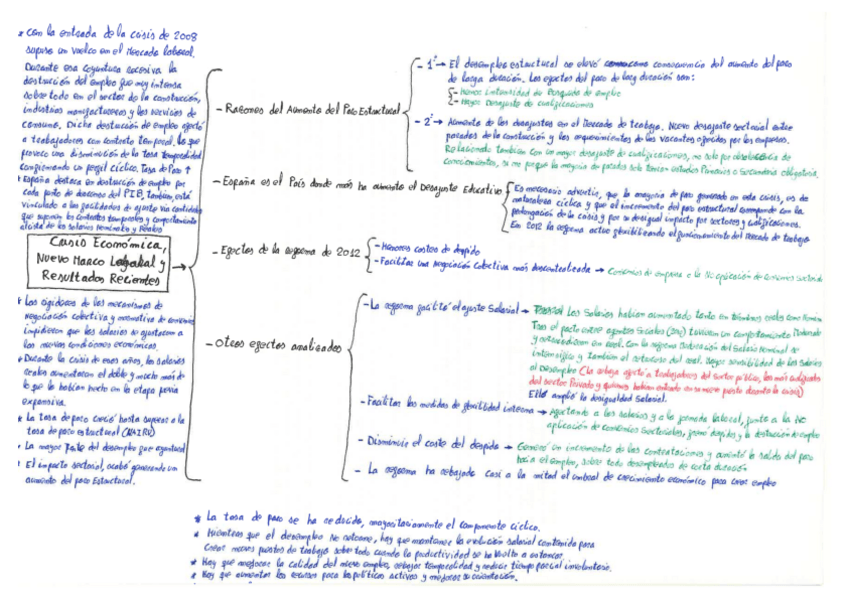 * Con la entrada de la crisis de 2008
supuso un vuelco en el Mercado laboral.
Durante esa coyuntura recesiva la
destrucción del empleo fue muy intensa
sobre todo en el sector de la construcción,
industrias manufactureras y los servicios de
consumo. Dicha destrucción de empleo afectó
a trabajadores con contrato temporal, lo que
provoco una disminución de la tasa temporalidad
confirmando un perfil cíclico. Tasa de Paro ↑
* España destaca en destrucción de empleo por
cada punto de descenso del PIB, también está
vinculado a las facilidades de ajuste vía cantidades
que suponen los contratos temporales y comportamiento
alcista de los salarios nominales y reales
Crisis Económica,
Nuevo Marco Legal y
Resultados Recientes
* Las rigideces de los mecanismos de
negociación colectiva y normativa de convenios
impidieron que los salarios se ajustaran a
las nuevas condiciones económicas.
* Durante la crisis de esos años, los salarios
reales aumentaron el doble y mucho más de
lo que lo habían hecho en la etapa previa
expansiva.
* La tasa de paro creció hasta superar a la
tasa de paro estructural (NAIRU)
* La mayor parte del desempleo que aumentó
* El impacto sectorial, acabó generando un
aumento del Paro Estructural.
- Razones del Aumento del Paro Estructural
- 1ª → El desempleo estructural se elevó como consecuencia del aumento del paro
de larga duración. Los efectos del paro de larga duración son:
1- Menor intensidad de Búsqueda de empleo
2- Mayor Desajuste de cualificaciones
- 2ª → Aumento de los desajustes en el Mercado de trabajo. Nuevo desajuste sectorial entre
parados de la construcción y los requerimientos de las vacantes ofrecidas por las empresas.
Relacionado también con un mayor desajuste de cualificaciones, no solo por obsolescencia de
conocimientos, si no porque la mayoría de parados solo tenían estudios Primarios o Secundaria obligatoria.
- España es el País donde más ha aumento el Desajuste Educativo
Es necesario advertir, que la mayoría de paro generado en esta crisis, es de
naturaleza cíclica y que el incremento del paro estructural corresponde con la
prolongación de la crisis y por su desigual impacto por sectores y cualificaciones.
En 2012 la reforma actuo flexibilizando el funcionamiento del Mercado de trabajo
- Efectos de la reforma de 2012
- Menores costes de despido
- Facilitar una negociación Colectiva más descentralizada → Convenios de empresa o la No aplicación de convenios sectoriales
- Otros efectos analizados
- La reforma facilitó el ajuste Salarial → Los Salarios habían aumentado tanto en términos reales como Nominales
Tras el pacto entre agentes Sociales tuvieron un comportamiento Moderado
y retrocedieron en real. Con la reforma Reducción del Salario Nominal se
intensifica y también el retroceso del real. Mayor sensibilidad de los Salarios
al Desempleo (La rebaja afectó a trabajadores del sector público, los más cualificados
del sector Privado y quienes habían entrado en su nuevo puesto durante la crisis)
Ello amplió la desigualdad Salarial.
- Facilitar las medidas de flexibilidad interna → Ajustando a los salarios y a la jornada laboral, junto a la No
aplicación de Convenios Sectoriales, frenó despidos y la destrucción de empleo
- Disminuir el coste del despido → Generó un incremento de las contrataciones y aumentó la salida del paro
hacia el empleo, sobre todo desempleados de corta duración
- La reforma ha rebajado casi a la mitad el umbral de crecimiento económico para crear empleo
* La tasa de paro se ha reducido, mayoritariamente el componente cíclico.
* Mientras que el desempleo No retorne, hay que mantener la evolución salarial contenida para
Crear nuevos puestos de trabajo sobre todo cuando la productividad se ha vuelto a estancar.
* Hay que mejorar la calidad del nuevo empleo, rebajar temporalidad y reducir tiempo parcial involuntario.
* Hay que aumentar los recursos para las políticas activas y mejorar su orientación.